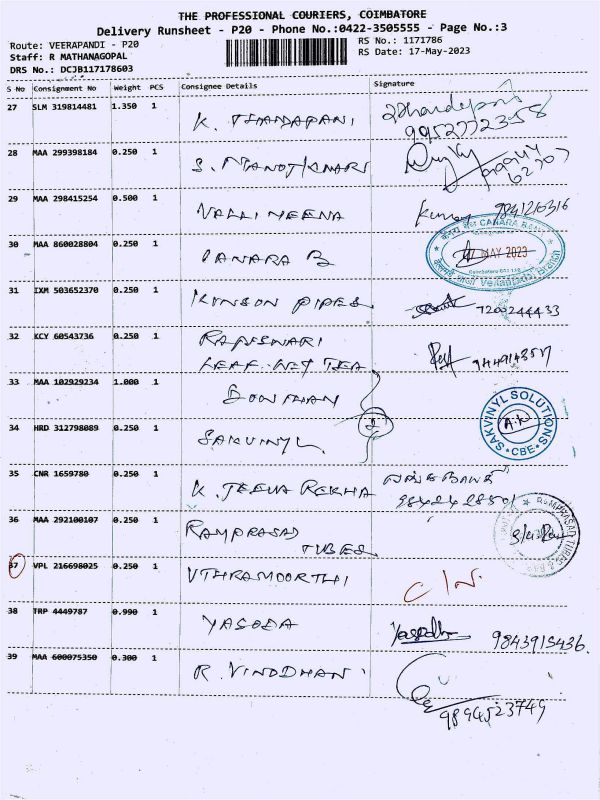 THE PROFESSIONAL COURIERS, COIMBATORE
Delivery Runsheet - P20 - Phone No.:0422-3505555 - Page No.:3
Route: VEERAPANDI - P20
RS No.: 1171786
Staff: R MATHANAGOPAL
RS Date: 17-May-2023
DRS No.: DCJB117178603
S No Consignment No Weight PCS Consignee Details Signature
27 SLM 319814481 1.350 1
K. THANDAPANI
9952772358
28 MAA 299398184 0.250 1
S.
29 MAA 298415254 0.500 1
VALLI MEENA 9841210316
30 MAA 860028804 0.250 1
CANARA B
CANARA BANK
17 MAY 2023
31 IXM 503652370 0.250 1
KINSON PIPES 7200244433
32 KCY 60543736 0.250 1
RAJESWARI
33 MAA 102929234 1.000 1
34 HRD 312798089 0.250 1
SAKVINYL
SAKVINYL SOLUTIONS
CBE
35 CNR 1659780 0.250 1
K. JEEVA REKHA
36 MAA 292100107 0.250 1
RAMPRASAD
TUBES
37 VPL 216698025 0.250 1
UTHRAMOORTHI C/N.
38 TRP 4449787 0.990 1
YASODA 9843915436.
39 MAA 600075350 0.300 1
R. VINODHANI
9894523749